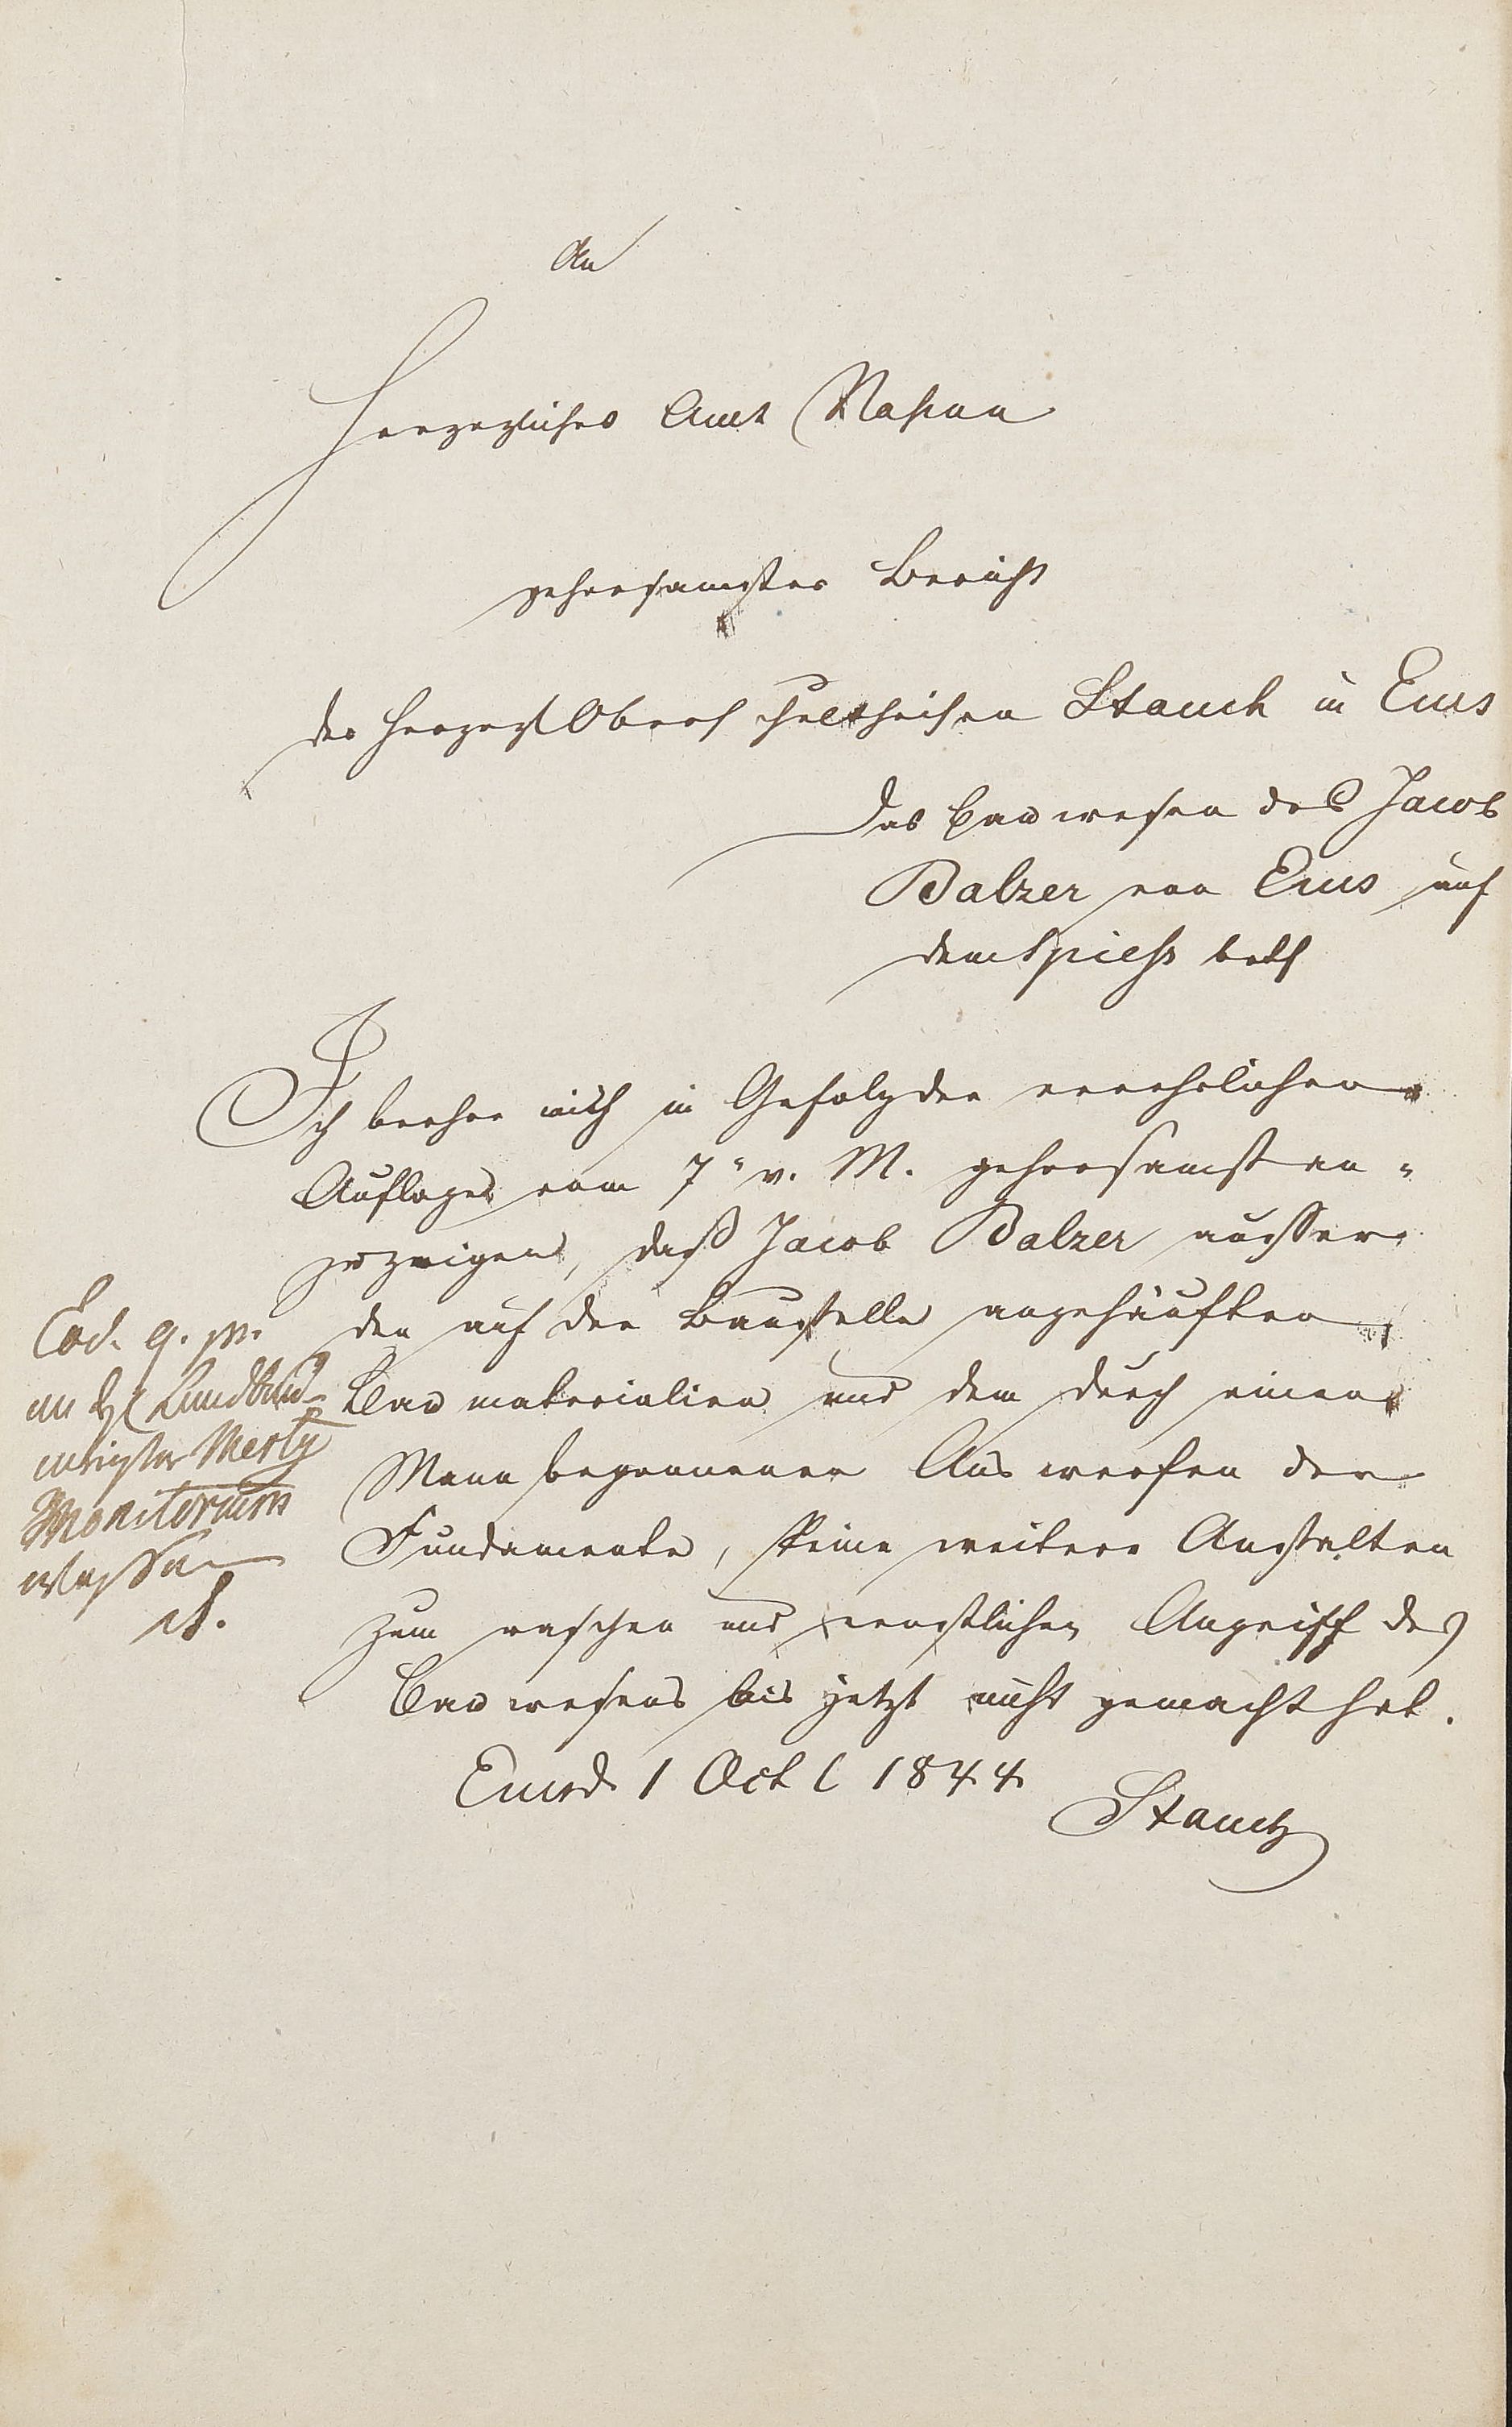 An
Herzogliches Amt Nassau
gehorsamster Bericht
des Herzogl Oberschultheisen Stauch in Ems
Das Bauwesen des Jacob
Balzer von Ems auf
dem Spiess betf
Ich beehre mich in Gefolg der verehrlichen
Auflage vom 7" v. M. gehorsamst an-
zuzeigen, daß Jacob Balzer ausser
den auf der Baustelle angehäuften
Baumaterialien und dem durch einen
Mann begonnenen Auswerfen der
Fundamente, keine weitere Anstalten
zum raschen und ernstlichen Angriff des
Bauwesens bis jetzt nicht gemacht hat.
Ems d 1 Octb 1844
Stauch
Eod. g. m.
an H Landbau-
meister
Monitorium
erlassen